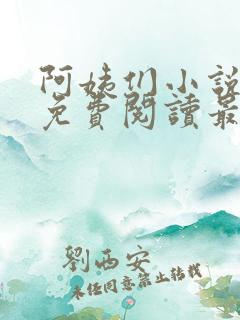 阿姨们小說
免費閱讀最
劉西安
未经同意禁止转载